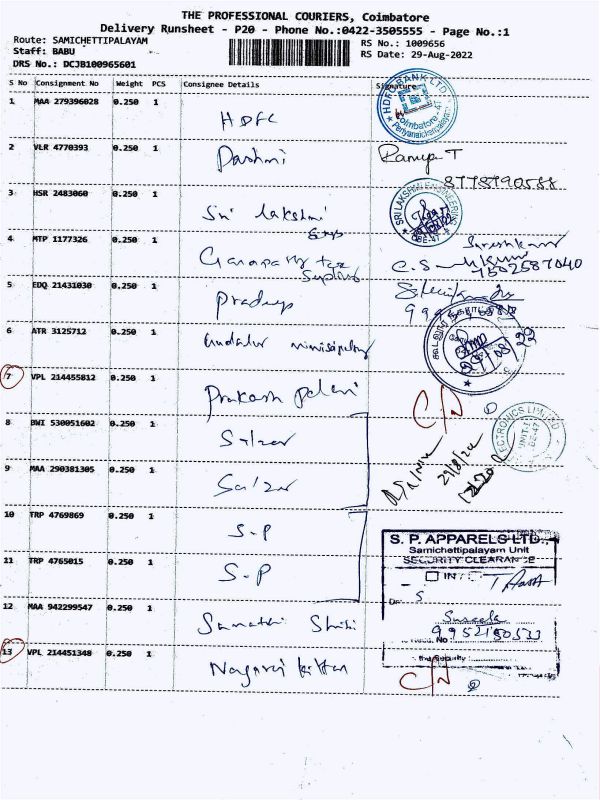 THE PROFESSIONAL COURIERS, Coimbatore
Delivery Runsheet - P20 - Phone No.:0422-3505555 - Page No.:1
Route: SAMICHETTIPALAYAM
RS No.: 1009656
Staff: BABU
RS Date: 29-Aug-2022
DRS No.: DCJB100965601
S No Consignment No Weight PCS Consignee Details Signature
1 MAA 279396028 0.250 1 HDFC
HDFC BANK LTD.
Coimbatore - 47
2 VLR 4770393 0.250 1 Dashmi Ramya T
8778790588
3 HSR 2483060 0.250 1 Sri lakshmi
SRI LAKSHMI ENGINEERING
CBE-47
4 MTP 1177326 0.250 1 Ganapathy tex Sureshkumar
C.S
7502587040
5 EDQ 21431030 0.250 1 Pradeep
6 ATR 3125712 0.250 1
29/08/22
7 VPL 214455812 0.250 1 Prakash pelavi C/N
8 BWI 530051602 0.250 1 Salzer
ELECTRONICS LIMITED
UNIT-I
CBE-47
9 MAA 290381305 0.250 1 Salzer
29/8/22
10 TRP 4769869 0.250 1 S-P
11 TRP 4765015 0.250 1 S-P
S. P. APPARELS LTD.,
Samichettipalayam Unit
SECURITY CLEARANCE
IN
12 MAA 942299547 0.250 1
Suresh
9952150533
No
13 VPL 214451348 0.250 1 Nagaraj kittan C/N